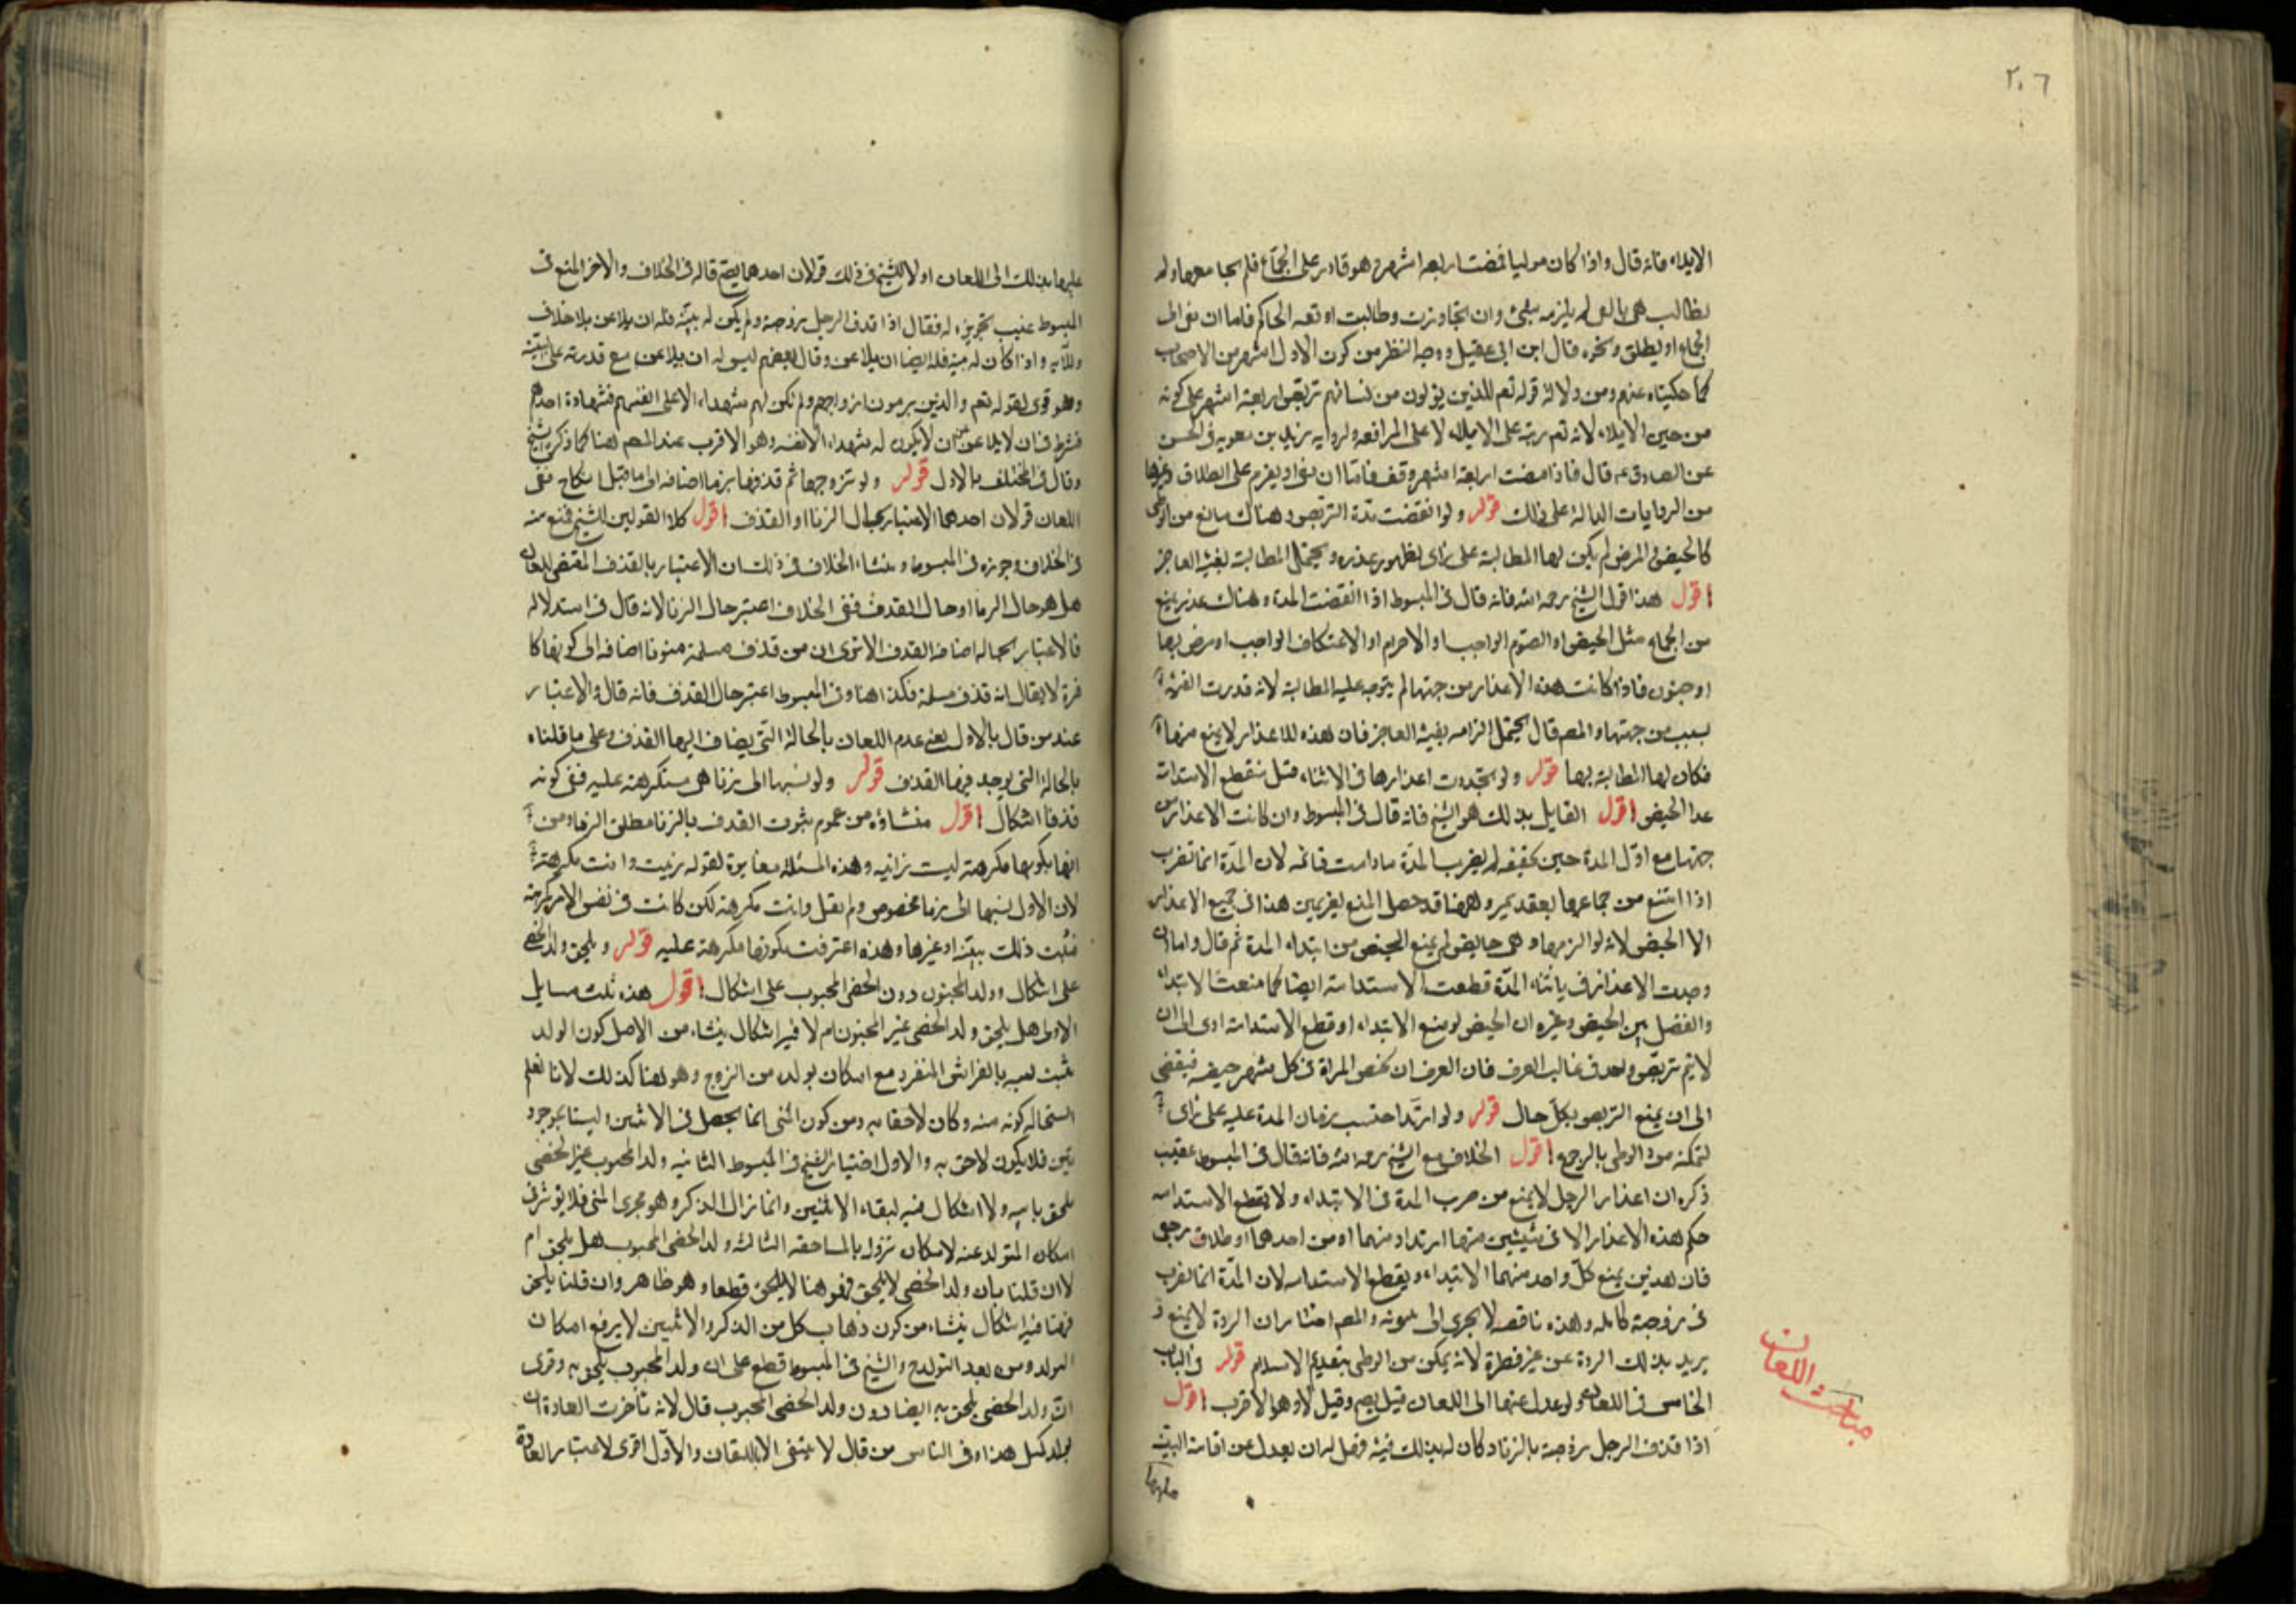 ٢٠٦
الايلاء فانه قال واذا كان موليا فمضت اربعة اشهر وهو قادر على الجماع فلم يجامعها ولم
تطالب هى بالفى لم يلزمه بشئ وان تجاوزت وطالبت اوقفه الحاكم فاما ان يفى الى
الجماع او يطلق ونحوه قال ابن ابى عقيل ووجه النظر من كون الاول اشهر بين الاصحاب
كما حكيناه عنهم ومن دلالة قوله تعم للذين يؤلون من نسائهم تربص اربعة اشهر على كونه
من حين الايلاء لانه تعم رتبه على الايلاء لا على المرافعه ولرواية بريد بن معوية فى الحسن
عن الصادق ع قال فاذا مضت اربعة اشهر وقف فاما ان يفئ او يعزم على الطلاق وغيرها
من الروايات الدالة على ذلك قوله ولو انقضت مدة التربص وهناك مانع من الوطى
كالحيض والمرض لم يكن لها المطالبة على راى لظهور عذره ويحتمل المطالبة بفيئة العاجز
اقول هذا قول الشيخ رحمه الله فانه قال فى المبسوط اذا انقضت المدة وهناك عذر يمنع
من الجماع مثل الحيض او الصوم الواجب او الاحرام او الاعتكاف الواجب او مرض بها
او جنون فاذا كانت هذه الاعذار من جهتها لم يتوجه عليه المطالبة لانه قدرت الفيئة
بسبب من جهتها والمصم قال يحتمل الزامه بفيئة العاجز فان هذه الاعذار لا يمنع منها
فكان لها المطالبة بها قوله ولو تجددت اعذارها فى الاثناء قيل ينقطع الاستدامة
عدا الحيض اقول القايل بذلك هو الشيخ فانه قال فى المبسوط وان كانت الاعذار من
جهتها مع اول المدة حين لم يضرب المدة ما دامت قائمه لان المدة انما تضرب
اذا امتنع من جماعها بعقد يمين وههنا قد حصل المنع بغير يمين هذا فى جميع الاعذار
الا الحيض لانه لو الزمها وهى حايض لم يمنع الحيض من ابتداء المدة ثم قال واما ان
وجدت الاعذار فى اثناء المدة قطعت الاستدامة ايضا كما منعت الابتداء
والفصل بين الحيض وغيره ان الحيض لو منع الابتداء او قطع الاستدامة ادى الى ان
لا يتم تربص واحد فى غالب العرف فان العرف ان تحيض المراة فى كل شهر حيضه فيفضى
الى ان يمنع التربص بكل حال قوله ولو ارتد احتسب زمان المدة عليه على راى
لتمكنه من الوطى بالرجوع اقول الخلاف مع الشيخ رحمه الله فانه قال فى المبسوط عقيب
ذكره ان اعذار الرجل لا يمنع من ضرب المدة فى الابتداء ولا يقطع الاستدامه
حكم هذه الاعذار الا فى شيئين منها ارتداد منهما او من احدهما او طلاق رجعى
فان هذين يمنع كل واحد منهما الابتداء ويقطع الاستدامه لان المدة انما تضرب
فى زوجة كامله وهذه ناقصه لا يجرى الى بينونه والمصم اختار ان الردة لا يمنع و
يريد بذلك الردة عن غير فطرة لانه يمكن من الوطى بتقديم الاسلام قوله فى الباب
الخامس فى اللعان ولو عدل عنها الى اللعان قيل يصح وقيل لا وهو الاقرب اقول
اذا قذف الرجل زوجته بالزنا وكان له بذلك بينة فهل له ان يعدل عن اقامة البينة
عليها
مباحث اللعان
عليها بذلك الى اللعان او لا للشيخ فى ذلك قولان احدهما يصح قاله فى الخلاف والاخر المنع فى
المبسوط عقيب تجويزه له فقال اذا قذف الرجل زوجته ولم يكن له بينة فله ان يلاعن بلا خلاف
وللاية واذا كان له بينة فله ايضا ان يلاعن وقال بعضهم ليس له ان يلاعن مع قدرته على البينة
وهو قوى لقوله تعم والذين يرمون ازواجهم ولم تكن لهم شهداء الا انفسهم فشهادة احدهم
فشرط فى ان لا يلاعن ان لا يكون له شهداء الا نفسه وهو الاقرب عند المصم لهذا كما ذكره الشيخ
وقال فى المختلف بالاول قوله ولو تزوجها ثم قذفها بزنا اضافه الى ما قبل النكاح ففى
اللعان قولان احدهما الاعتبار بحال الزنا او القذف اقول كلا القولين للشيخ فمنع منه
فى الخلاف وجوزه فى المبسوط ومنشاء الخلاف فى ذلك ان الاعتبار بالقذف المقتضى للعان
هل هو حال الزنا او حال القذف ففى الخلاف اعتبر حال الزنا لانه قال فى استدلاله
فالاعتبار بحاله اضافه القذف الا ترى ان من قذف مسلمة بزنا اضافه الى كونها كا
فرة لا يقال انه قذف مسلمة فكذا هنا وفى المبسوط اعتبر حال القذف فانه قال الاعتبار
عند من قال بالاول يعنى عدم اللعان بالحالة التى يضاف اليها القذف وعلى ما قلناه
بالحالة التى يوجد فيها القذف قوله ولو نسبها الى زنا هى مستكرهة عليه ففى كونه
قذفا اشكال اقول منشاؤه من عموم ثبوت القذف بالزنا مطلق الزنا ومن
انها بكونها مكرهة ليست زانيه وهذه المسئلة مغايرة لقوله زنيت وانت مكرهة
لان الاول نسبها الى زنا مخصوص ولم يقل وانت مكرهة لكن كانت فى نفس الامر مكرهة
فثبت ذلك ببينة او غيرها وهذه اعترفت بكونها مكرهة عليه قوله ويلحق ولد الخصى
على اشكال وولد المجبوب دون الخصى المجبوب على اشكال اقول هذه ثلث مسايل
الاولى هل يلحق ولد الخصى غير المجبوب ام لا فيه اشكال ينشاء من الاصل كون الولد
يثبت نسبه بالفراش المنفرد مع امكان تولده من الزوج وهو هنا كذلك لانا لا نعلم
استحاله كونه منه وكان لاحقا به ومن كون المنى انما يحصل فى الانثيين وليستا بموجود
تين فلا يكون لاحق به والاول اختيار الشيخ فى المبسوط الثانيه ولد المجبوب غير الخصى
يلحق بابيه ولا اشكال فيه لبقاء الانثيين وانما زال الذكر وهو مجرى المنى فلا يؤثر فى
امكان التولد عنه لامكان نزوله بالمساحقه الثالثه ولد الخصى المجبوب هل يلحق ام
لا ان قلنا بان ولد الخصى لا يلحق فهو هنا لا يلحق قطعا وهو ظاهر وان قلنا يلحق
فهنا فيه اشكال ينشاء من كون ذهاب كل من الذكر والانثيين لا يرفع امكان
التولد ومن بعد التولد والشيخ فى المبسوط قطع على ان ولد المجبوب يلحق به وقوى
ان ولد الخصى يلحق به ايضا دون ولد الخصى المجبوب قال لانه تاخرت العادة ان
يولد لمثل هذا وفى الناس من قال لا ينتفى الا باللعان والاول اقوى لاعتبار العادة